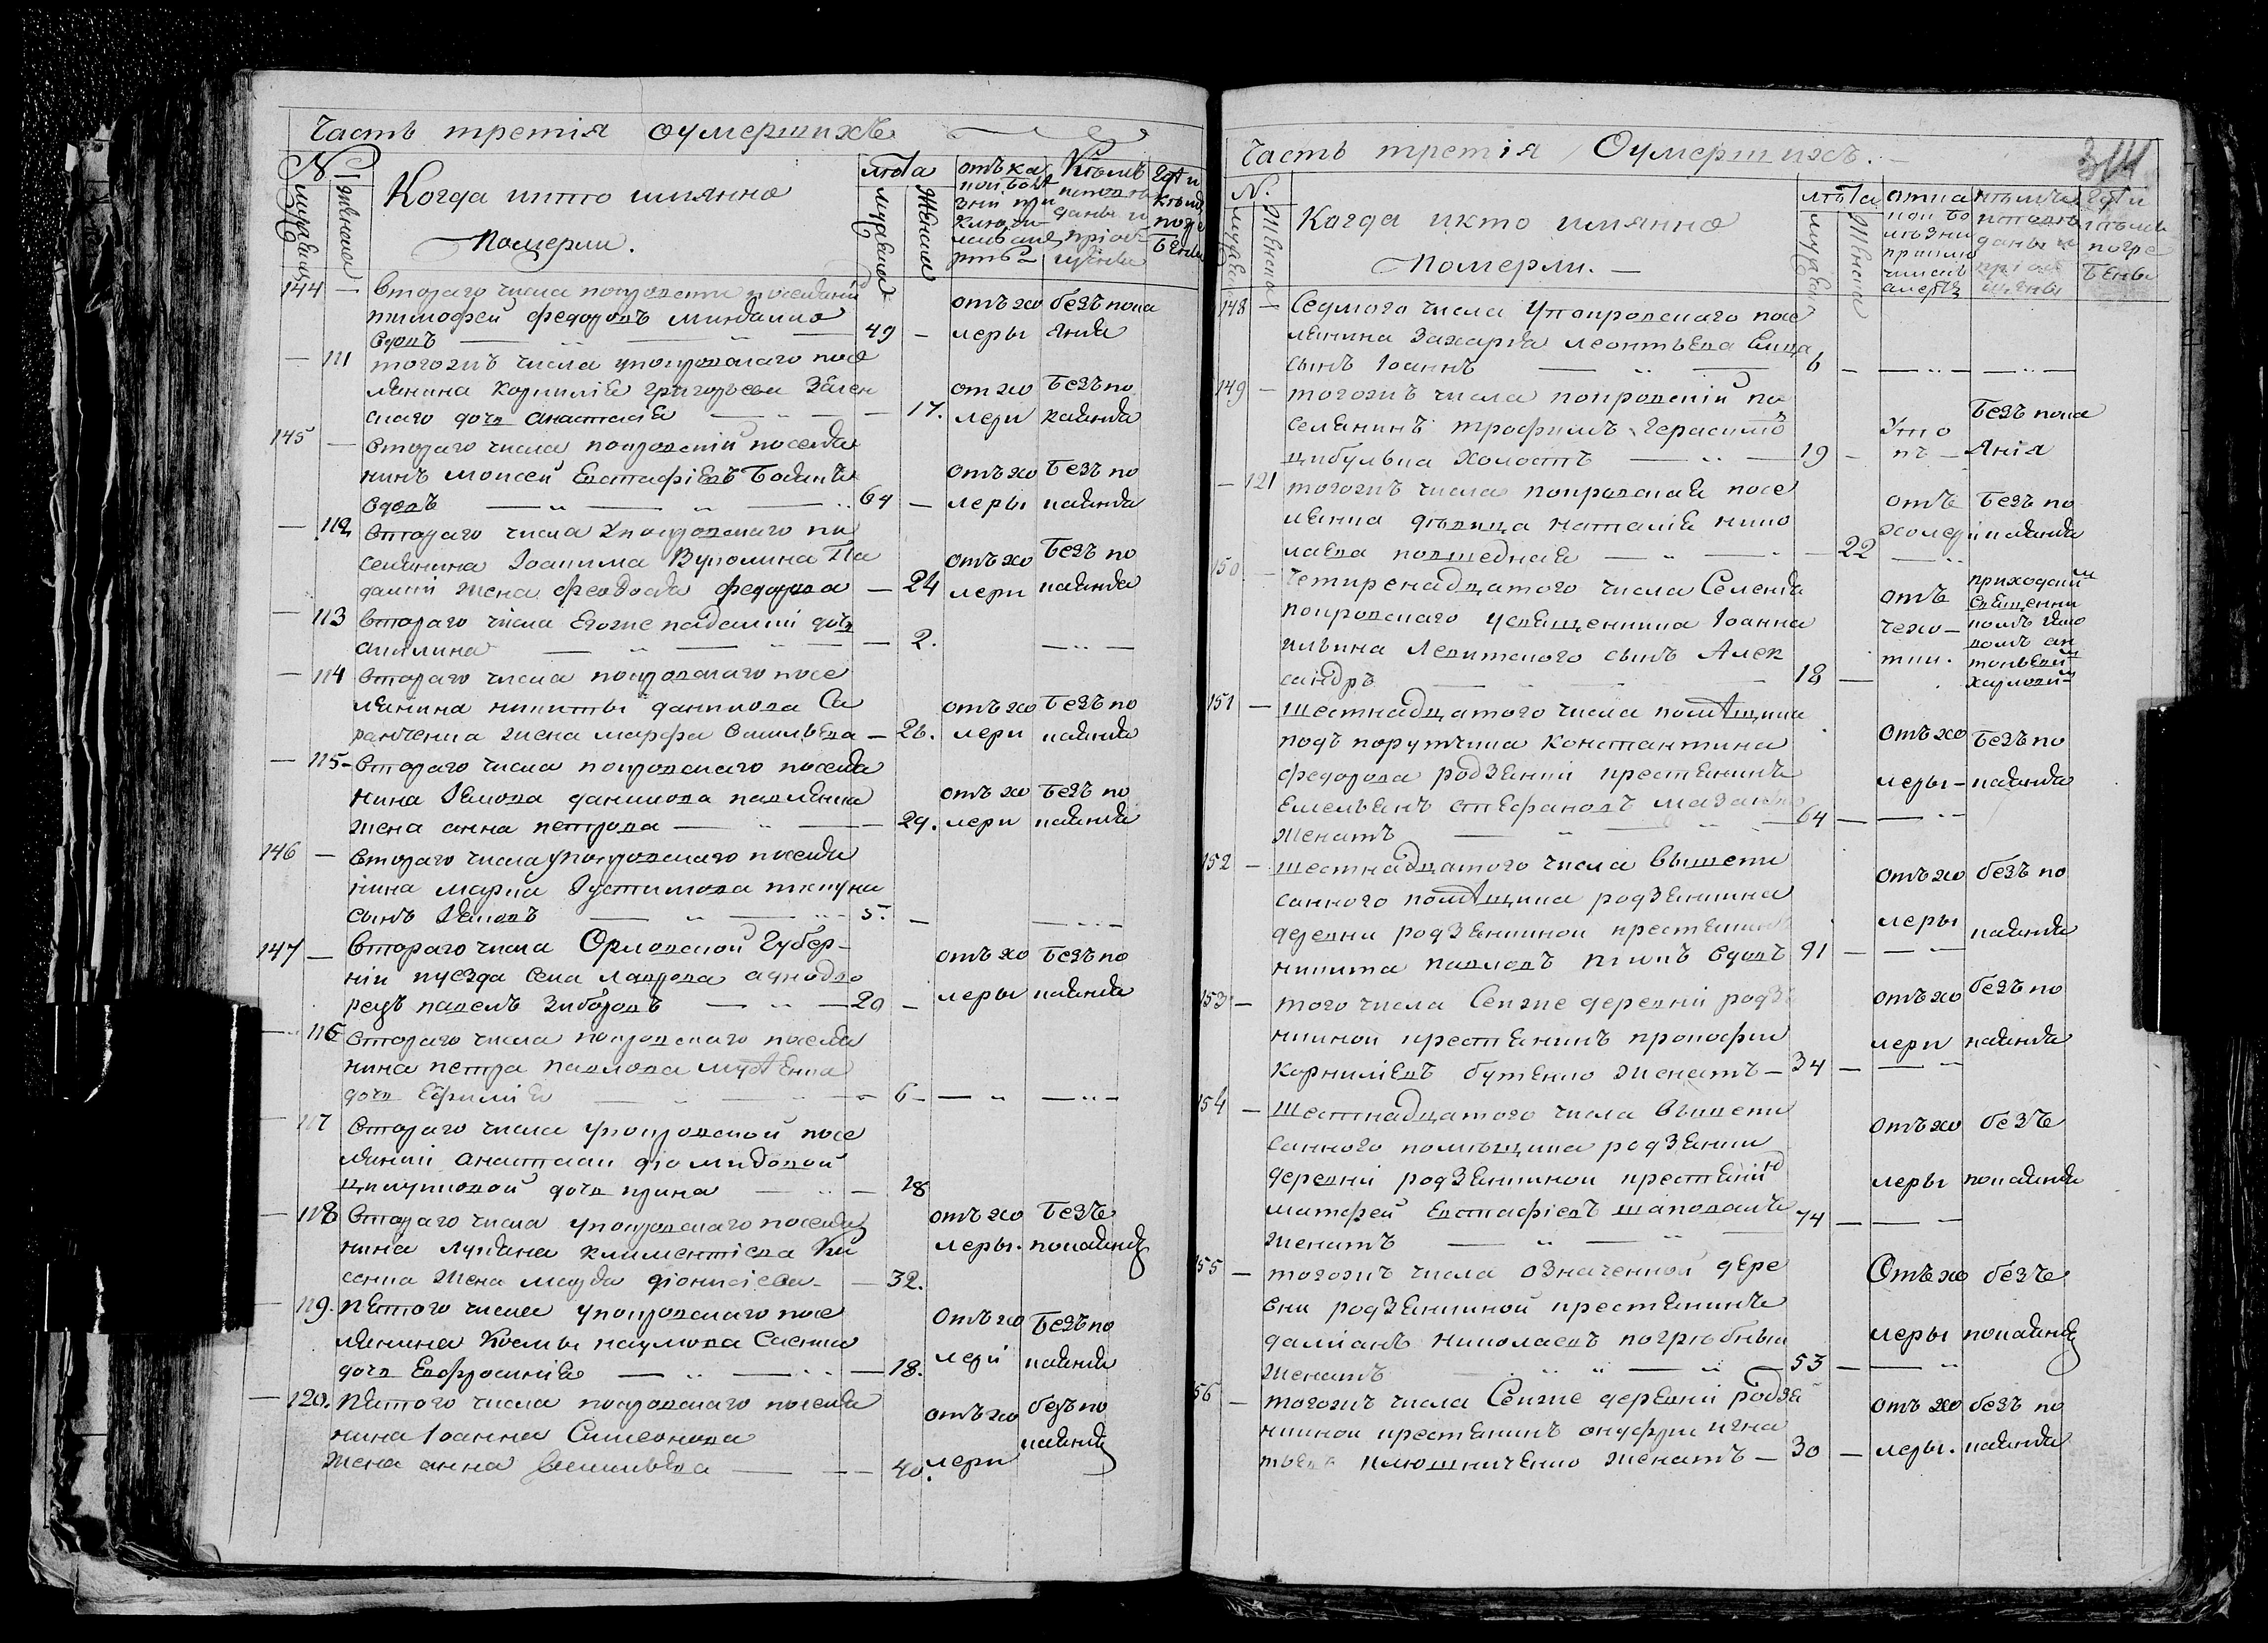 Часть третія оумершихъ
№
мужеска
женска
Когда икто имянно
Померли.
лѣта
мужеска
женска
отъ ка
кой болѣ
зни
Кѣмъ
исповѣ
даны и
пріоб
щены
Гдѣ и
кѣмъ
погре
бены
144 — Втораго числа покровскій поселянинъ
тимофей федоровъ
вдовъ — 49 — отъ хо леры без пока янія
— 111 тогожъ числа упокровскаго посе
лянина Корнилія григорьева Зелен
скаго дочь анастасія — 17. от хо лери безъ по каянія
145 — Втораго числа покровскій поселя
нинъ моисей Евстафіевъ
вдовъ — 64 — отъ хо леры безъ по каянія
— 112 Втораго числа упокровскаго по
селянина Іоакима
жена феодосія федорова — 24 отъ хо лери безъ по каянія
— 113 втораго числа Егоже дочь
акилина — 2. — " —
— 114 втораго числа покровскаго посе
лянина никиты данилова Са
ранченка жена марфа василѣва — 26. отъ хо лери безъ по каянія
— 115 — втораго числа покровскаго поселя
нина Якова данилова павленка
жена анна петрова — 29. отъ хо лери безъ по каянія
146 — втораго числа упокровскаго поселя
нина марка Іустимова
сынъ Яковъ — 5. — — " —
147 — втораго числа Орловской Губер-
ніи иуезда села лаврова аднодво
рецъ павелъ Зиборовъ — 20 — отъ хо леры безъ по каянія
— 116 втораго числа покровскаго поселя
нина петра павлова
дочь Ефимія — 6 — — " — — " —
117 втораго числа упокровской посе
лянки анастасіи діомидовой
дочь ирина — 18
— 118 втораго числа упокровскаго поселя
нина лукіана климентіева Ки
сенка жена марфа діонисіева — 32. отъ хо леры. безъ покаянія
— 119. пятого числа упокровскаго посе
лянина Космы наумова
дочь Евфросинія — 18. отъ хо лери безъ по каянія
— 120. пятого числа покровскаго поселя
нина Іоанна Симеонова
жена анна василѣва — 40. отъ хо лери безъ по каянія
Часть третія Оумершихъ. —
314
№.
мужеска
женска
Кагда икто имянно
померли. —
лѣта
мужеска
женска
кѣмъ
исповѣ
даны и
пріоб
щены
гдѣ и
кѣмъ
погре
бены
148 — Седмого числа Упокровскаго посе
лянина Захарія леонтьева
сынъ Іоаннъ — 6 — — " — — " —
149 — тогожъ числа покровскій по
селянинъ трофимъ Герасимо
цибулька холостъ — 19 — Уто пъ — безъ пока янія
— 121 тогожъ числа покровская посе
лянка дѣвица наталія нико
лаева — 22 отъ холеры безъ по каянія
150 — Четиренадцатого числа Селенія
покровскаго усвященника Іоанна
ильина Левитского сынъ Алек
сандръ — 18 — отъ чехо— тки.
приходскимъ
священни
комъ
151 — шестнадцатого числа помѣщика
подъ порутчика Константина
федорова родзянки крестьянинъ
Емельянъ стефановъ
женатъ — 64 — отъ хо леры — безъ по каянія
152 — шестнадцатого числа вышепи
санного помѣщика родзянкина
деревни родзянкиной крестьянинъ
никита павловъ вдовъ 91 — отъ хо леры безъ по каянія
153 — того числа Сеиже деревни родзя
нкиной крестьянинъ прокофій
корниліевъ бутенко женатъ — 34 — отъ хо лери безъ по каянія
154 — Шестнадцатого числа вышепи
санного помѣщика родзянки
деревни родзянкиной крестьянин
матфей Евстафіевъ шаповалъ 74 — отъ хо леры безъ покаянія
женатъ —
155 — тогожъ числа означенной дере
вни родзянкиной крестьянинъ
даміанъ николаевъ погрѣбный
женатъ — 53 — Отъ хо леры безъ покаянія
156 — тогожъ числа Сеиже деревни родзя
нкиной крестьянинъ онуфрій игна
тьевъ клюшниченко женатъ — 30 — отъ хо леры. безъ по каянія